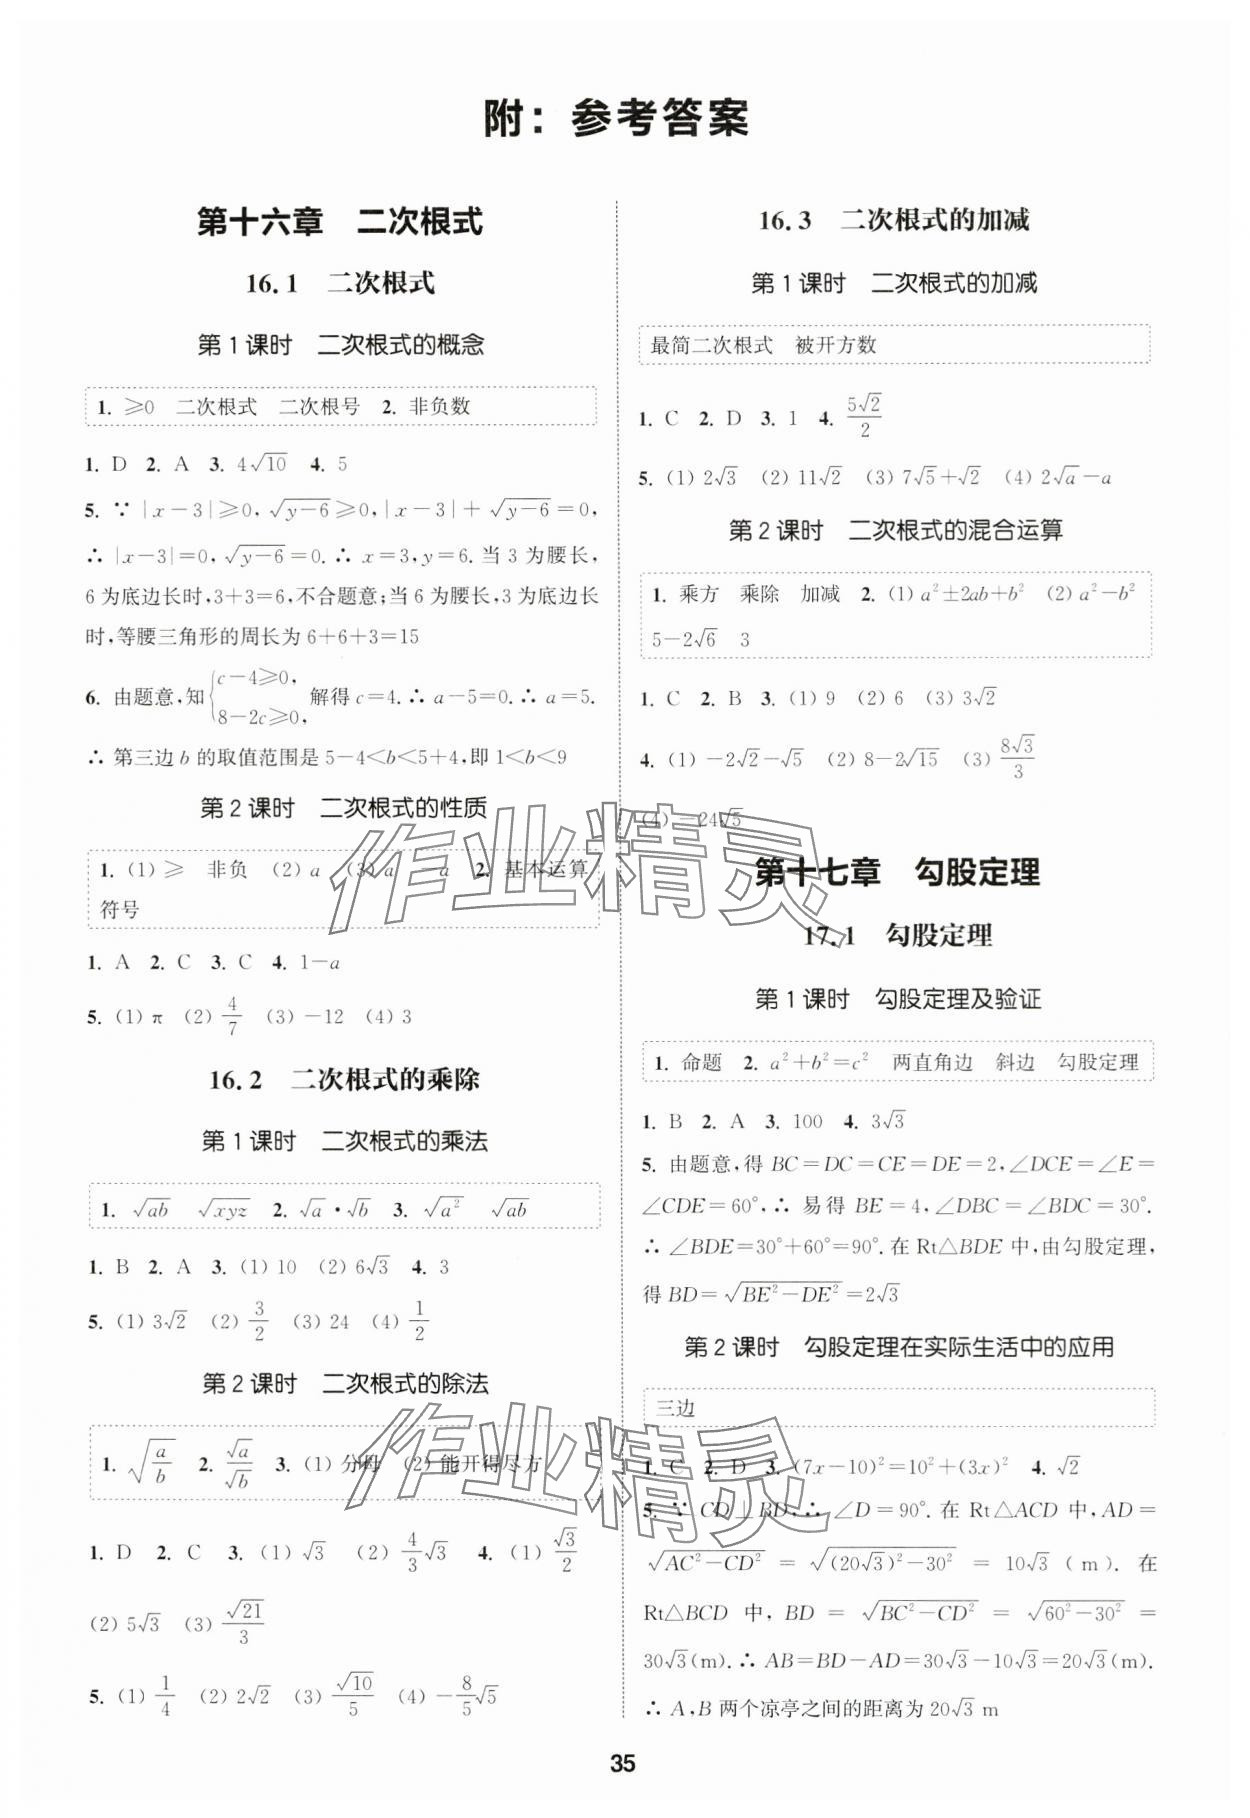 附：参考答案
第十六章　二次根式
16.1　二次根式
第1课时　二次根式的概念
1. ≥0　二次根式　二次根号　2. 非负数
1. D　2. A　3. 4√10　4. 5
5. ∵|x－3|≥0，√(y－6)≥0，|x－3|＋√(y－6)＝0，
∴|x－3|＝0，√(y－6)＝0. ∴ x＝3，y＝6. 当 3 为腰长，
6 为底边长时，3＋3＝6，不合题意；当 6 为腰长，3 为底边长
时，等腰三角形的周长为 6＋6＋3＝15
6. 由题意，知{c－4≥0，8－2c≥0， 解得 c＝4. ∴ a－5＝0. ∴ a＝5.
∴ 第三边 b 的取值范围是 5－4＜b＜5＋4，即 1＜b＜9
第2课时　二次根式的性质
1. (1) ≥　非负　(2) a　(3) a　－a　2. 基本运算
符号
1. A　2. C　3. C　4. 1－a
5. (1) π　(2) 4/7　(3) －12　(4) 3
16.2　二次根式的乘除
第1课时　二次根式的乘法
1. √ab　√xyz　2. √a·√b　3. √a²　√ab
1. B　2. A　3. (1) 10　(2) 6√3　4. 3
5. (1) 3√2　(2) 3/2　(3) 24　(4) 1/2
第2课时　二次根式的除法
1. √(a/b)　2. √a/√b　3. (1) 分母　(2) 能开得尽方
1. D　2. C　3. (1) √3　(2) 4/3√3　4. (1) √3/2
(2) 5√3　(3) √21/3
5. (1) 1/4　(2) 2√2　(3) √10/5　(4) －8/5√5
16.3　二次根式的加减
第1课时　二次根式的加减
最简二次根式　被开方数
1. C　2. D　3. 1　4. 5√2/2
5. (1) 2√3　(2) 11√2　(3) 7√5＋√2　(4) 2√a－a
第2课时　二次根式的混合运算
1. 乘方　乘除　加减　2. (1) a²±2ab＋b²　(2) a²－b²
5－2√6　3
1. C　2. B　3. (1) 9　(2) 6　(3) 3√2
4. (1) －2√2－√5　(2) 8－2√15　(3) 8√3/3
(4) －24√5
第十七章　勾股定理
17.1　勾股定理
第1课时　勾股定理及验证
1. 命题　2. a²＋b²＝c²　两直角边　斜边　勾股定理
1. B　2. A　3. 100　4. 3√3
5. 由题意，得 BC＝DC＝CE＝DE＝2，∠DCE＝∠E＝
∠CDE＝60°，∴ 易得 BE＝4，∠DBC＝∠BDC＝30°.
∴ ∠BDE＝30°＋60°＝90°. 在 Rt△BDE 中，由勾股定理，
得 BD＝√(BE²－DE²)＝2√3
第2课时　勾股定理在实际生活中的应用
三边
1. C　2. D　3. (7x－10)²＝10²＋(3x)²　4. √2
5. ∵ CD⊥BD，∴ ∠D＝90°. 在 Rt△ACD 中，AD＝
√(AC²－CD²)＝√((20√3)²－30²)＝10√3 (m). 在
Rt△BCD 中，BD＝√(BC²－CD²)＝√(60²－30²)＝
30√3 (m). ∴ AB＝BD－AD＝30√3－10√3＝20√3 (m).
∴ A，B 两个凉亭之间的距离为 20√3 m
35
作业精灵
作业精灵